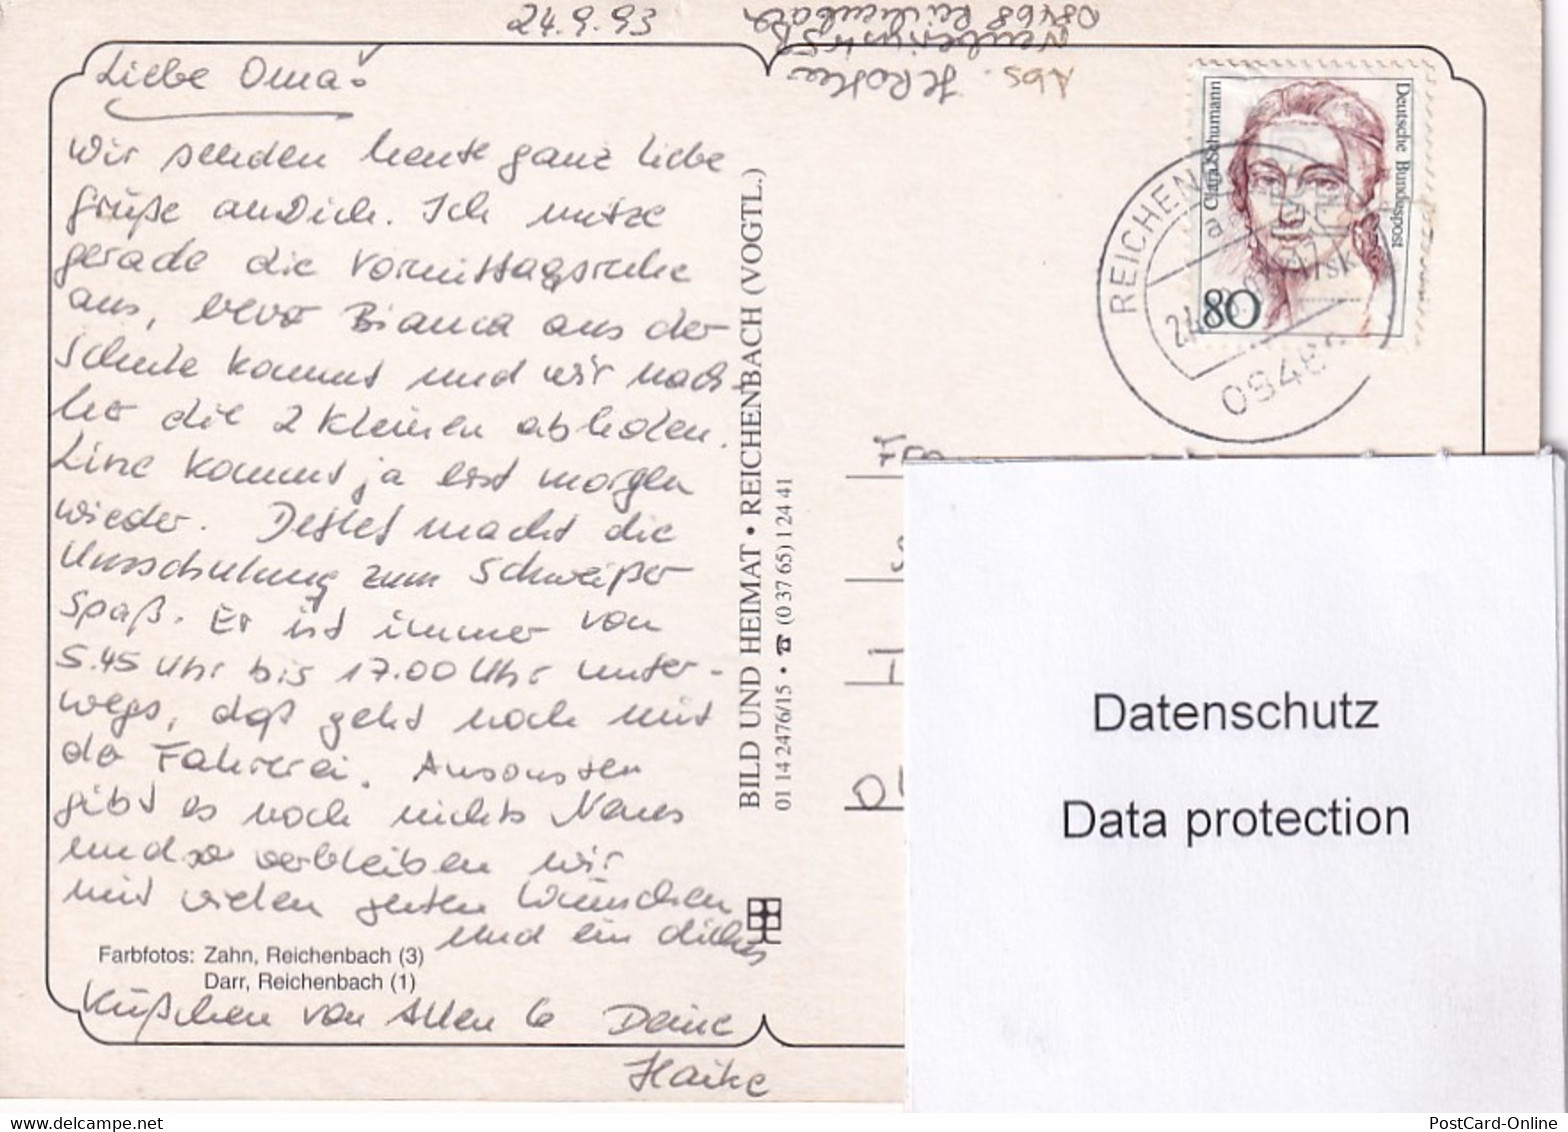 24.9.93
Liebe Oma!
Wir senden heute ganz liebe
Grüße an Dich. Ich nutze
gerade die Vormittagsruhe
aus, bevor Bianca aus der
Schule kommt und wir nach-
her die 2 Kleinen abholen.
Line kommt ja erst morgen
wieder. Detlef macht die
Umschulung zum Schweißer
Spaß. Er ist immer von
5.45 Uhr bis 17.00 Uhr unter-
wegs, daß geht noch mit
der Fahrerei. Ansonsten
gibt es noch nichts Neues
und so verbleiben wir
mit vielen guten Wünschen
und ein dickes
Küßchen von Allen 6 Deine
Heike
Farbfotos: Zahn, Reichenbach (3)
Darr, Reichenbach (1)
BILD UND HEIMAT • REICHENBACH (VOGTL.)
01 14 2476/15 • ☎ (0 37 65) 1 24 41
Abs.
08468 Reichenbach
Clara Schumann
Deutsche Bundespost
80
REICHENB
a
Datenschutz
Data protection
PostCard-Online